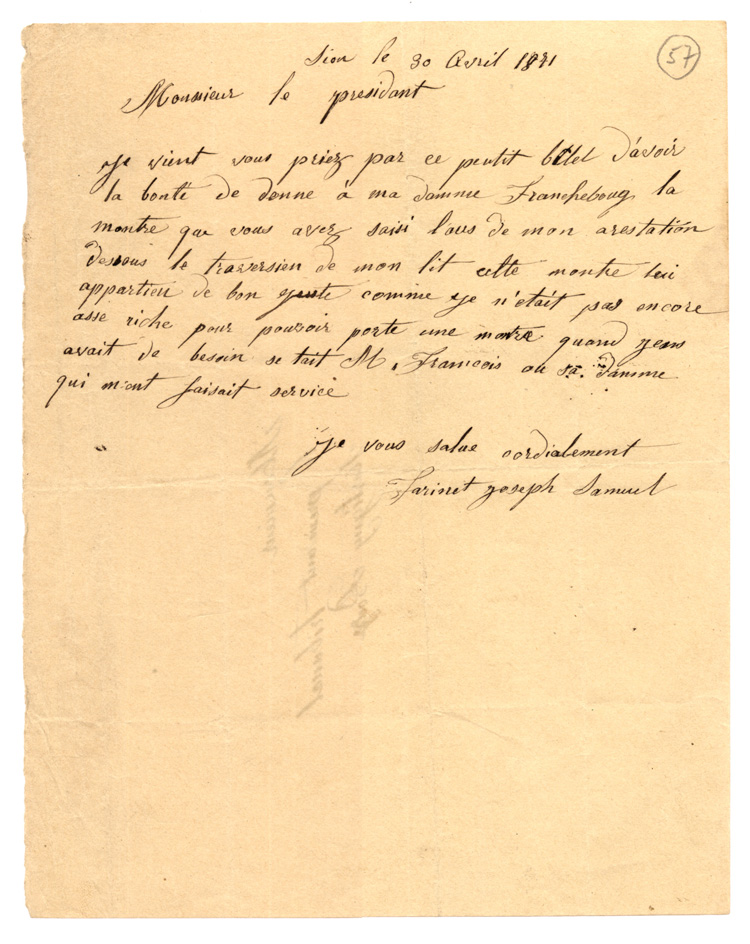 57
Sion le 30 Avril 1871
Monsieur le presidant
Je vient vous priez par ce peutit billet d'avoir
la bonté de donne à ma damme Francheboug la
montre que vous avez saisi l'ors de mon arestation
dessous le traversien de mon lit cette montre lui
appartien de bon comme je n'était pas encore
asse riche pour pouvoir porte une montre quand jens
avait de besoin se tait M. Francois ou sa. damme
qui m'ont faisait service
Je vous salue cordialement
Farinet Joseph Samuel